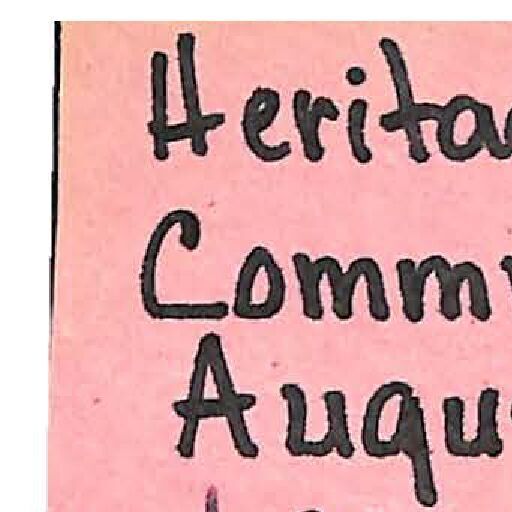 Herita
Comm
Augu